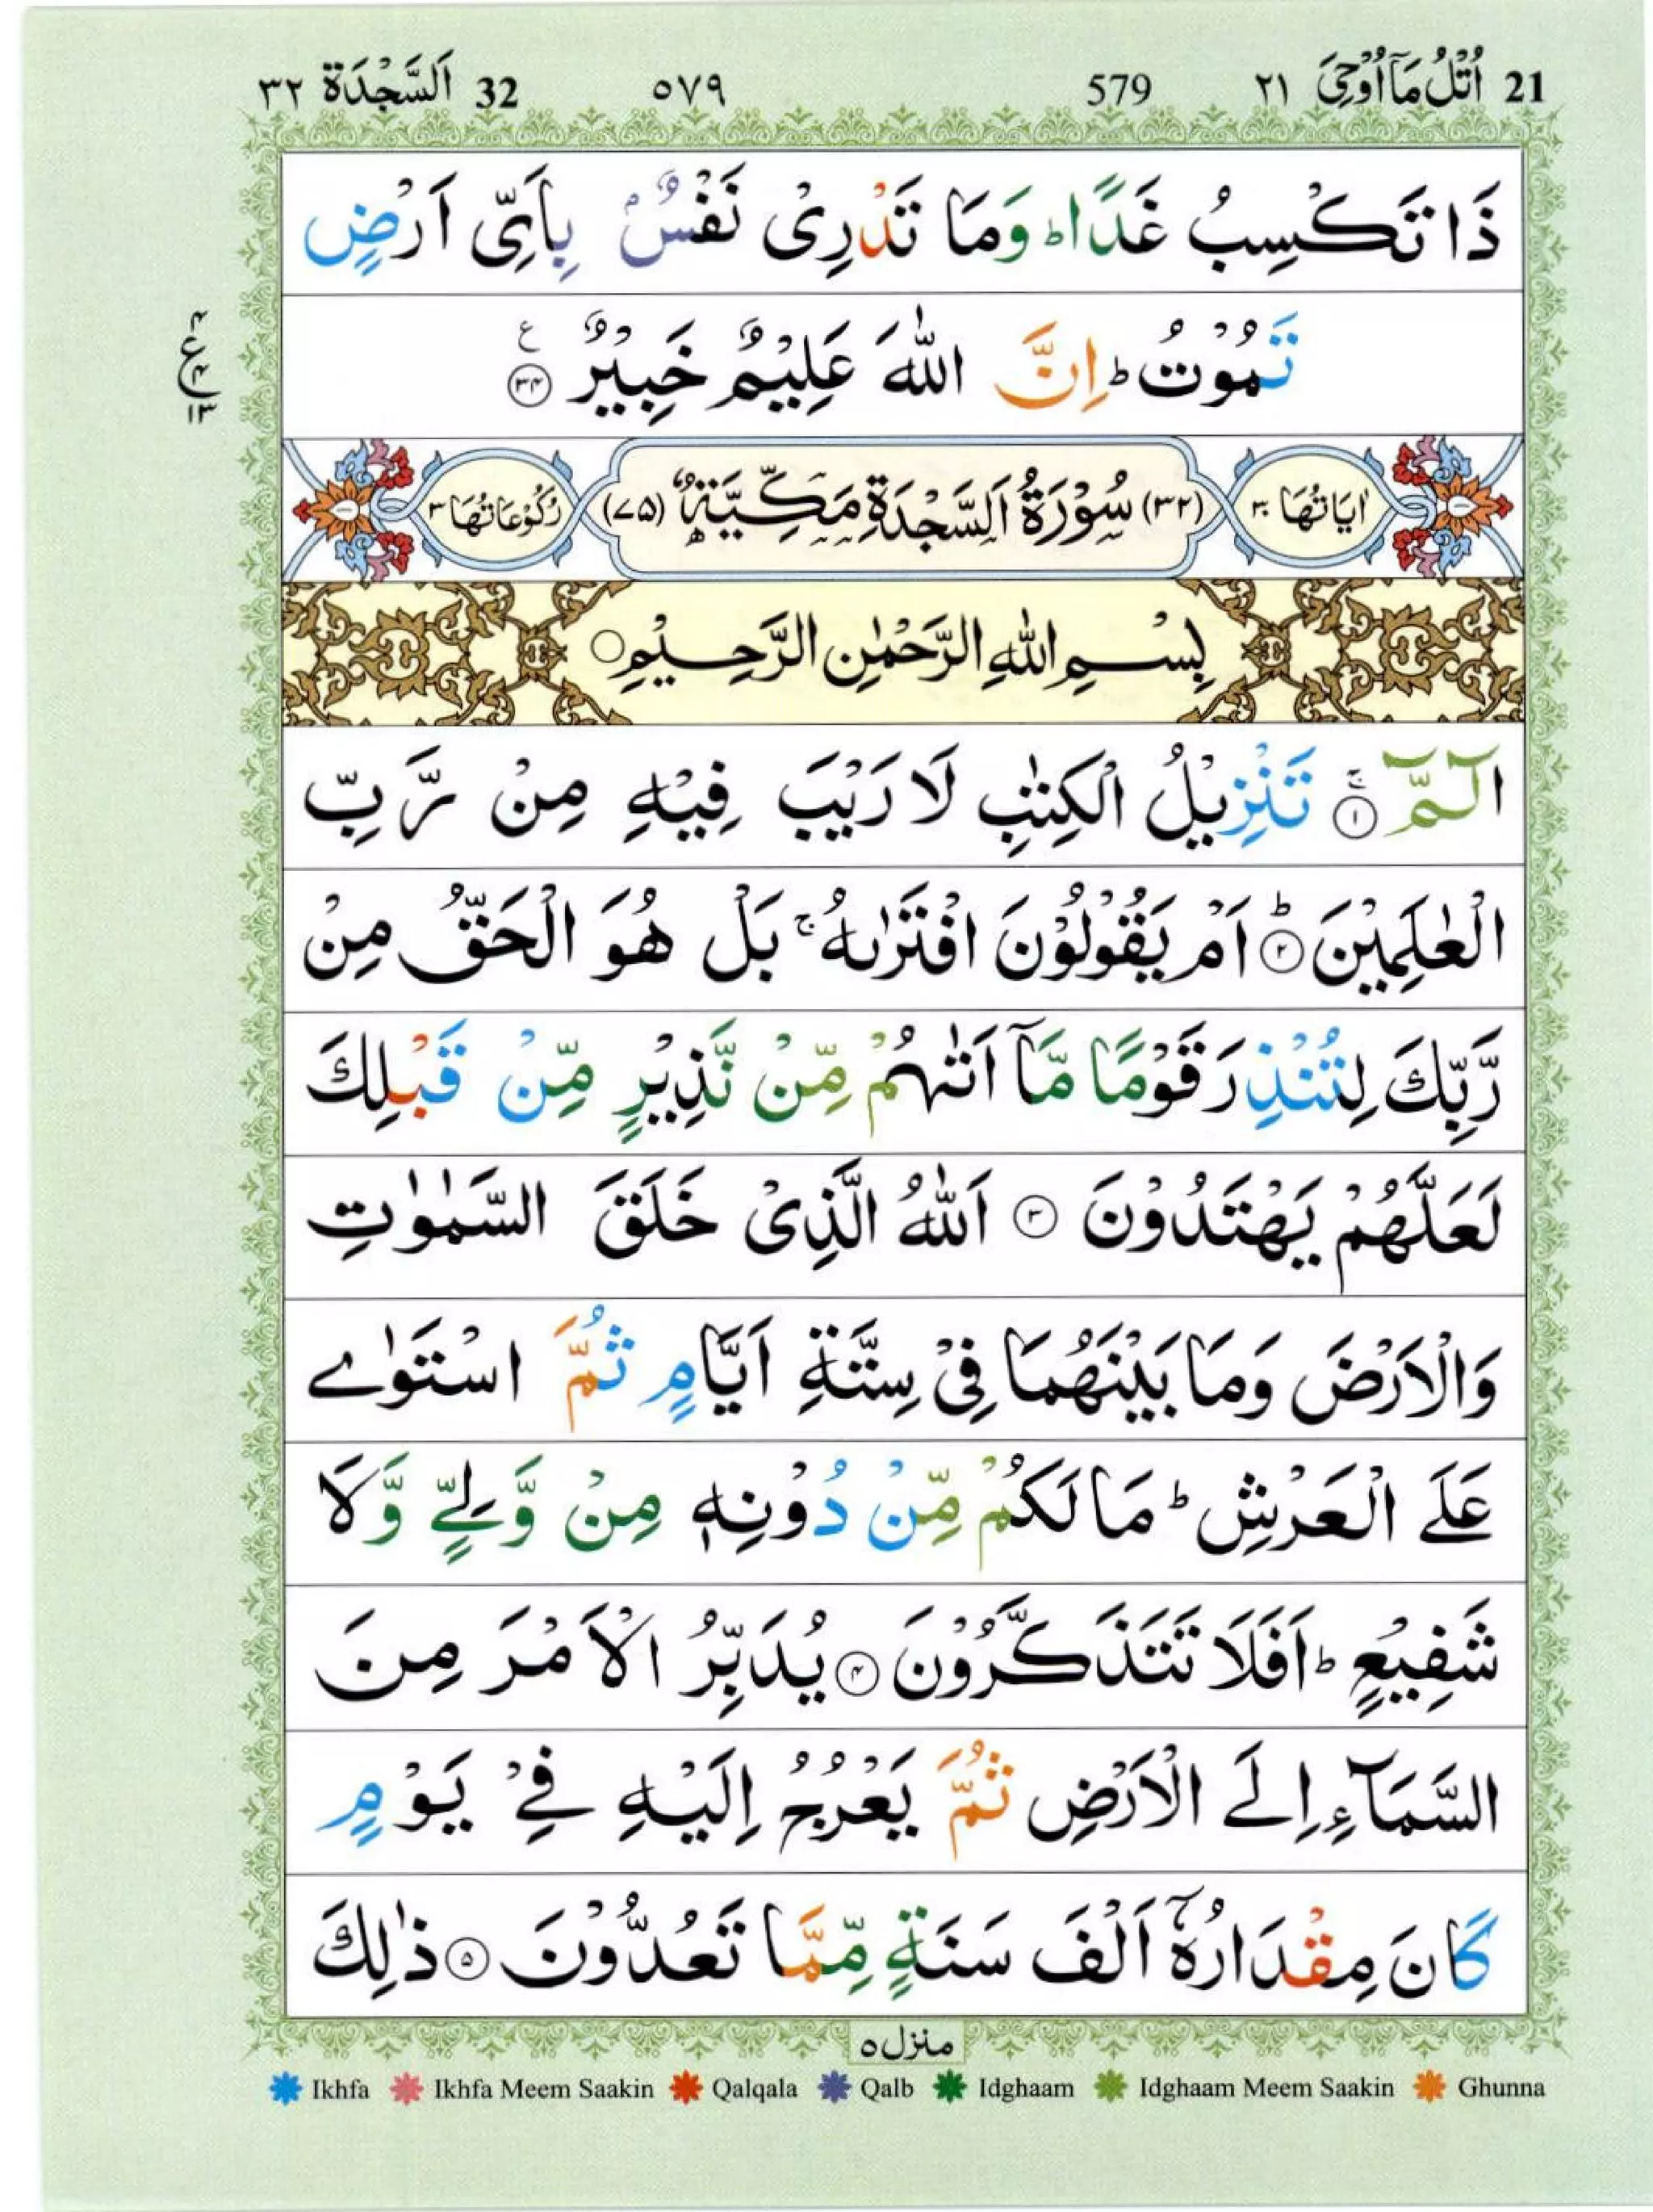 21 اُتْلُ مَآ اُوْحِیَ ٢١ 579 ٥٧٩ 32 اَلسَّجْدَة ٣٢
ذَا تَكْسِبُ غَدًا ؕ وَمَا تَدْرِیْ نَفْسٌۢ بِاَیِّ اَرْضٍ
تَمُوْتُ ؕ اِنَّ اللّٰهَ عَلِیْمٌ خَبِیْرٌ ۟ ٣٤ ع
ع ٤ ١٣
اٰیَاتُهَا ٣٠ (٣٢) سُوْرَةُ اَلسَّجْدَةِ مَكِّیَّةٌ (٧٥) رُكُوْعَاتُهَا ٣
بِسْمِ اللّٰهِ الرَّحْمٰنِ الرَّحِیْمِ ○
الٓمّٓ ۚ ١ تَنْزِیْلُ الْكِتٰبِ لَا رَیْبَ فِیْهِ مِنْ رَّبِّ
الْعٰلَمِیْنَ ؕ ٢ اَمْ یَقُوْلُوْنَ افْتَرٰىهُ ۚ بَلْ هُوَ الْحَقُّ مِنْ
رَّبِّكَ لِتُنْذِرَ قَوْمًا مَّاۤ اَتٰىهُمْ مِّنْ نَّذِیْرٍ مِّنْ قَبْلِكَ
لَعَلَّهُمْ یَهْتَدُوْنَ ٣ اَللّٰهُ الَّذِیْ خَلَقَ السَّمٰوٰتِ
وَالْاَرْضَ وَمَا بَیْنَهُمَا فِیْ سِتَّةِ اَیَّامٍ ثُمَّ اسْتَوٰے
عَلَے الْعَرْشِ ؕ مَا لَكُمْ مِّنْ دُوْنِهٖ مِنْ وَّلِےٍّ وَّلَا
شَفِیْعٍ ؕ اَفَلَا تَتَذَكَّرُوْنَ ٤ یُدَبِّرُ الْاَمْرَ مِنَ
السَّمَآءِ اِلَے الْاَرْضِ ثُمَّ یَعْرُجُ اِلَیْهِ فِےْ یَوْمٍ
كَانَ مِقْدَارُهٗۤ اَلْفَ سَنَةٍ مِّمَّا تَعُدُّوْنَ ٥ ذٰلِكَ
منزل ٥
Ikhfa Ikhfa Meem Saakin Qalqala Qalb Idghaam Idghaam Meem Saakin Ghunna